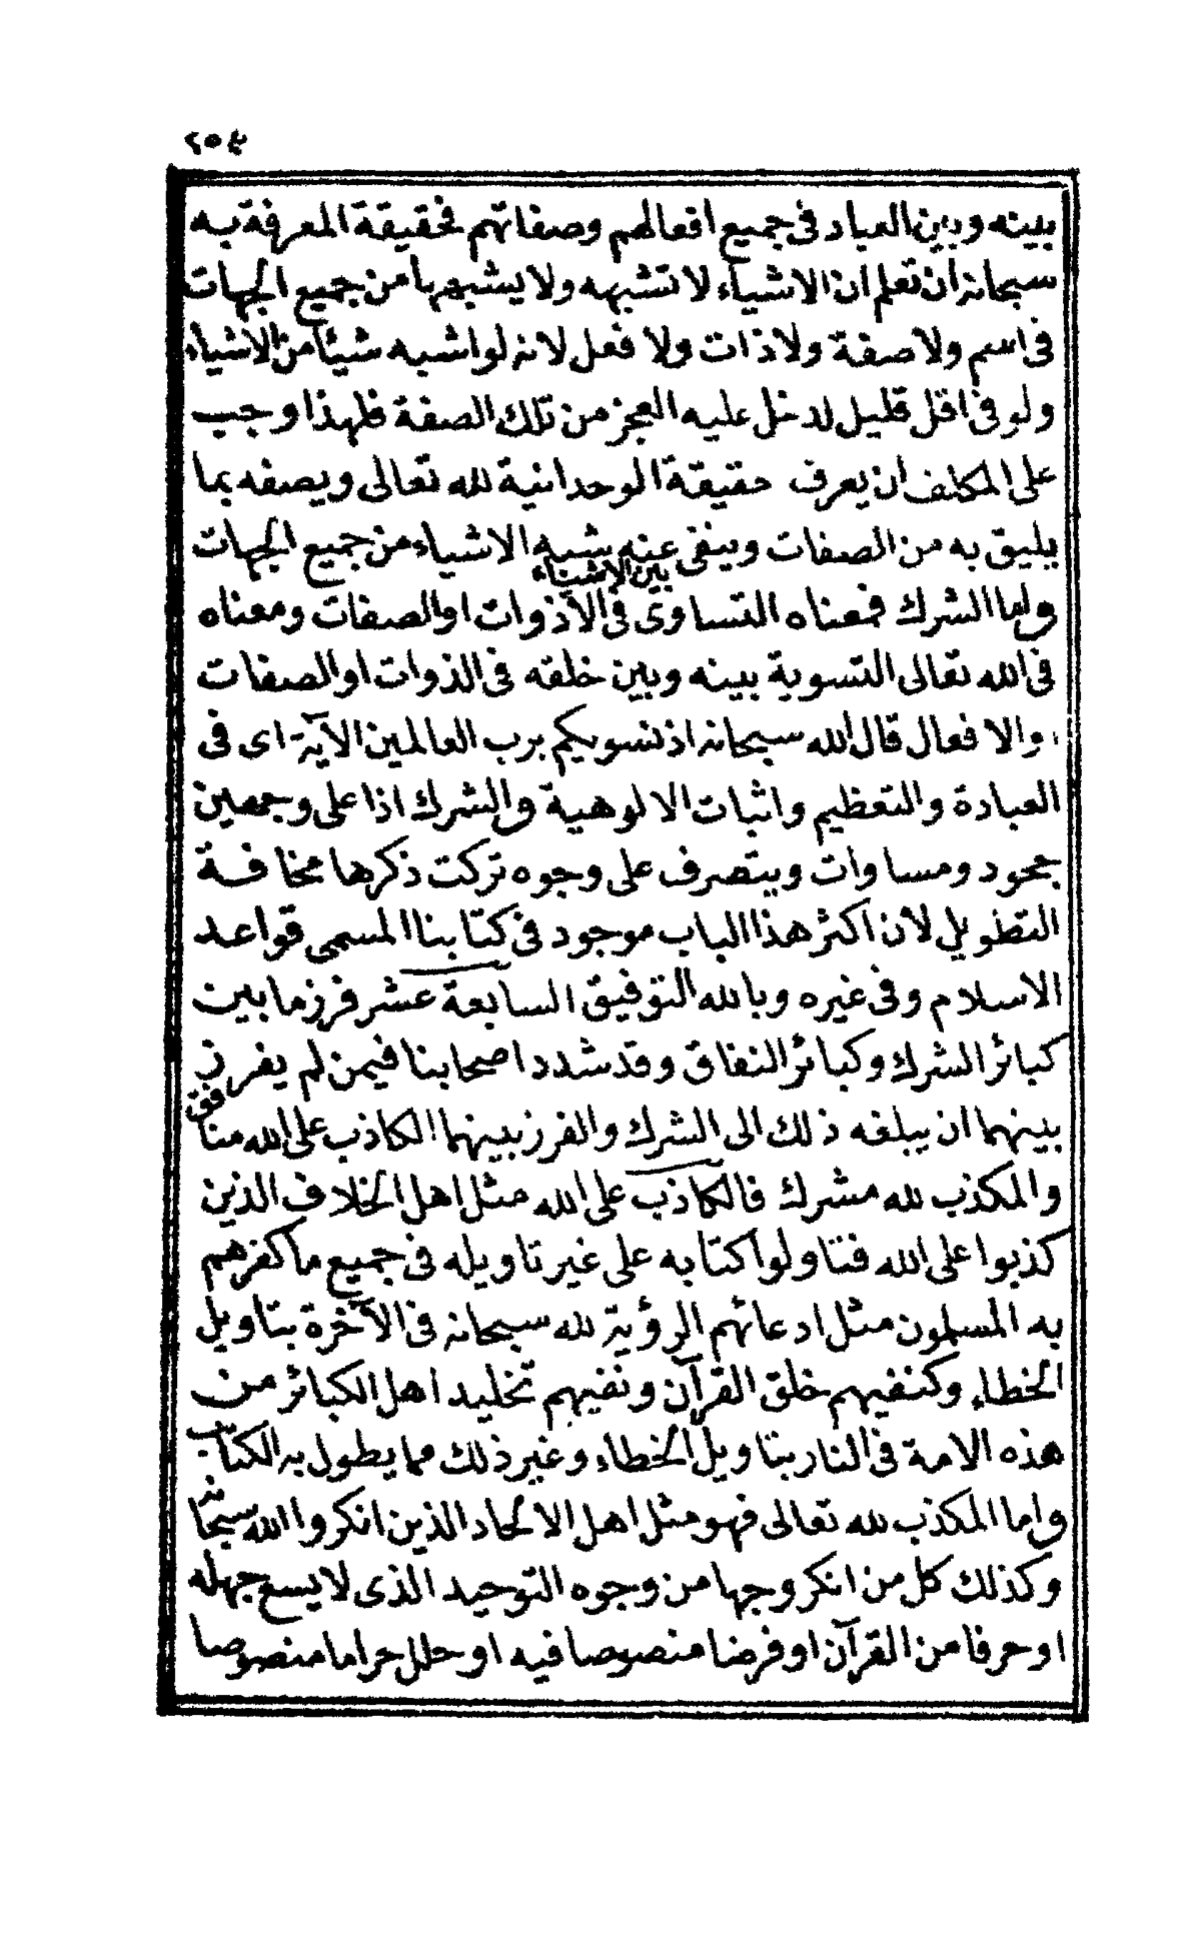 ٢٥٤
بينه وبين العباد فى جميع افعالهم وصفاتهم فحقيقة المعرفة به
سبحانه ان تعلم ان الاشياء لا تشبهه ولا يشبهها من جميع الجهات
فى اسم ولا صفة ولا ذات ولا فعل لانه لو اشبه شيئا من الاشياء
ولو فى اقل قليل لدخل عليه العجز من تلك الصفة فلهذا وجب
على المكلف ان يعرف حقيقة الوحدانية لله تعالى ويصفه بما
يليق به من الصفات وينفى عنه شبه الاشياء من جميع الجهات
بين الاشياء
واما الشرك فمعناه التساوى فى الاذوات او الصفات ومعناه
فى الله تعالى التسوية بينه وبين خلقه فى الذوات او الصفات
والافعال قال الله سبحانه اذ نسويكم برب العالمين الآية اى فى
العبادة والتعظيم واثبات الالوهية والشرك اذا على وجهين
جحود ومساوات ويتصرف على وجوه تركت ذكرها مخافة
التطويل لان اكثر هذا الباب موجود فى كتابنا المسمى قواعد
الاسلام وفى غيره وبالله التوفيق السابعة عشر فرز ما بين
كبائر الشرك وكبائر النفاق وقد شدد اصحابنا فيمن لم يفرز
بينهما ان يبلغه ذلك الى الشرك والفرز بينهما الكاذب على الله منافق
والمكذب لله مشرك فالكاذب على الله مثل اهل الخلاف الذين
كذبوا على الله فتاولوا كتابه على غير تاويله فى جميع ما كفرهم
به المسلمون مثل ادعائهم الرؤية لله سبحانه فى الآخرة بتاويل
الخطاء وكنفيهم خلق القرآن ونفيهم تخليد اهل الكبائر من
هذه الامة فى النار بتاويل الخطاء وغير ذلك مما يطول به الكتاب
واما المكذب لله تعالى فهو مثل اهل الالحاد الذين انكروا الله سبحانه
وكذلك كل من انكر وجها من وجوه التوحيد الذى لا يسع جهله
او حرفا من القرآن او فرضا منصوصا فيه او حلل حراما منصوصا